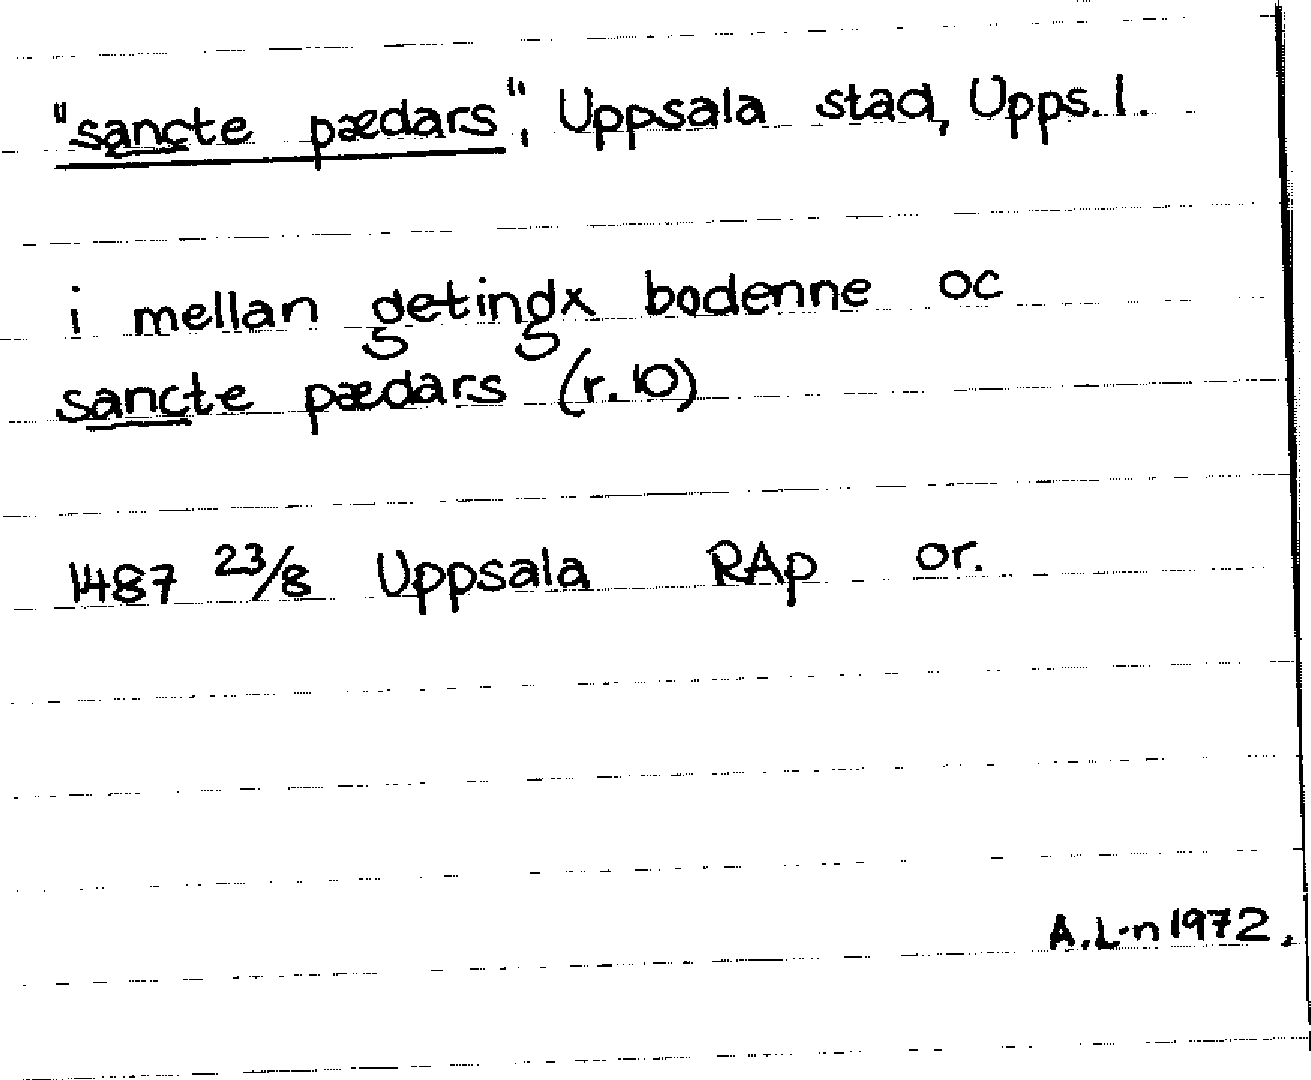 "sancte pædars", Uppsala stad, Upps. l.
i mellan getingx bodenne oc
sancte pædars (r. 10)
1487 23/8 Uppsala RAp or.
A.L-n 1972.